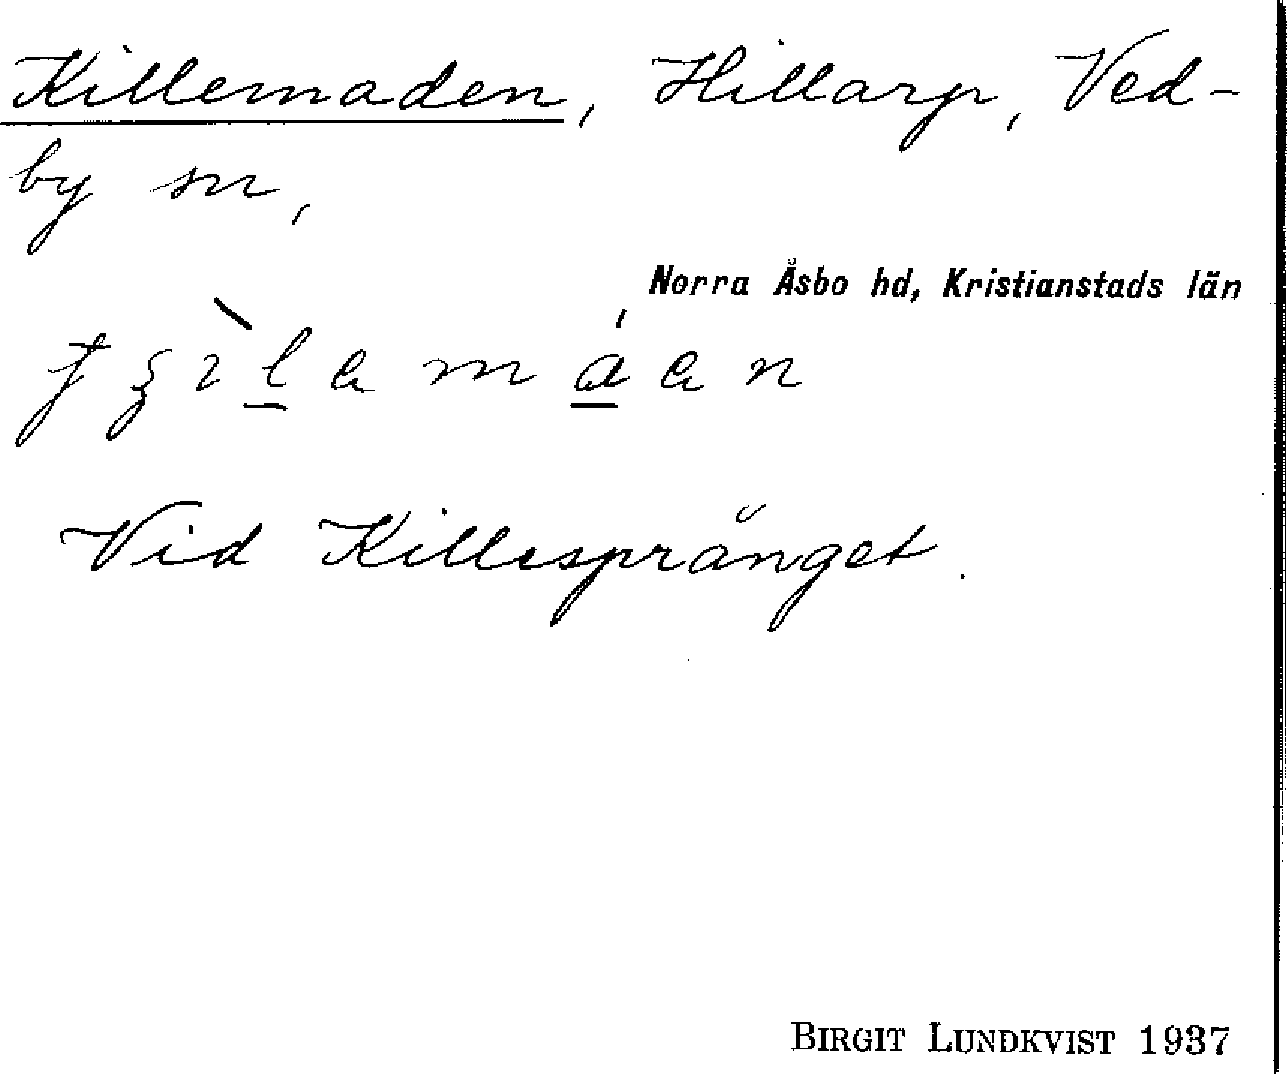 Killemaden, Hillarp, Ved-
by sn,
Norra Åsbo hd, Kristianstads län
Vid Killesprånget.
BIRGIT LUNDKVIST 1937